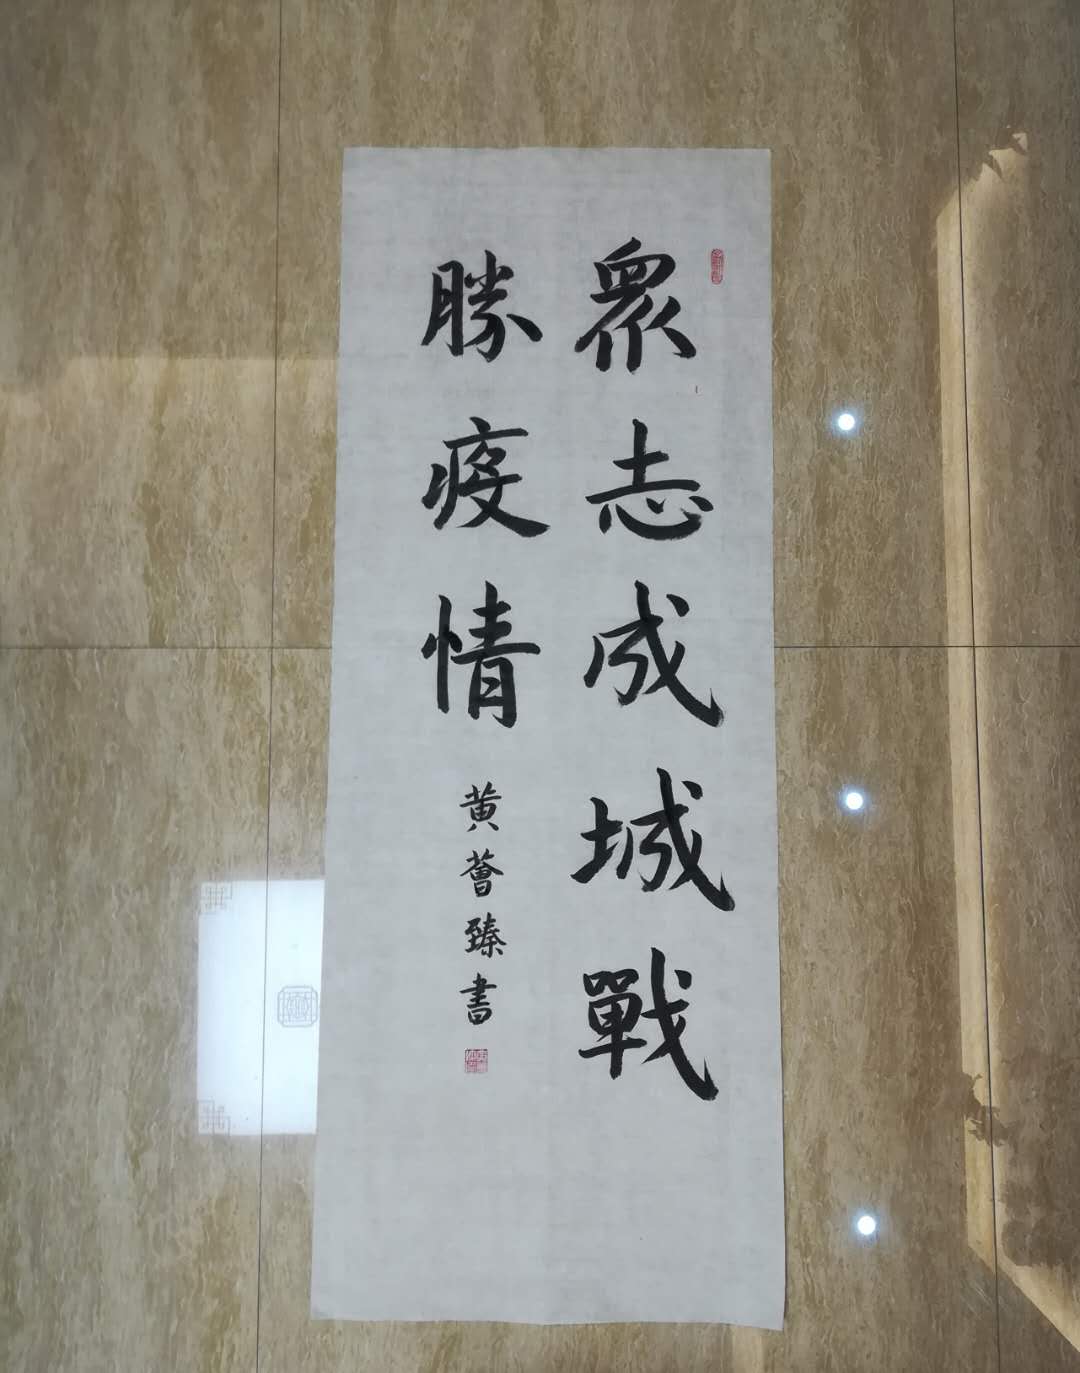 眾志成城戰
勝疫情
黄薈臻書